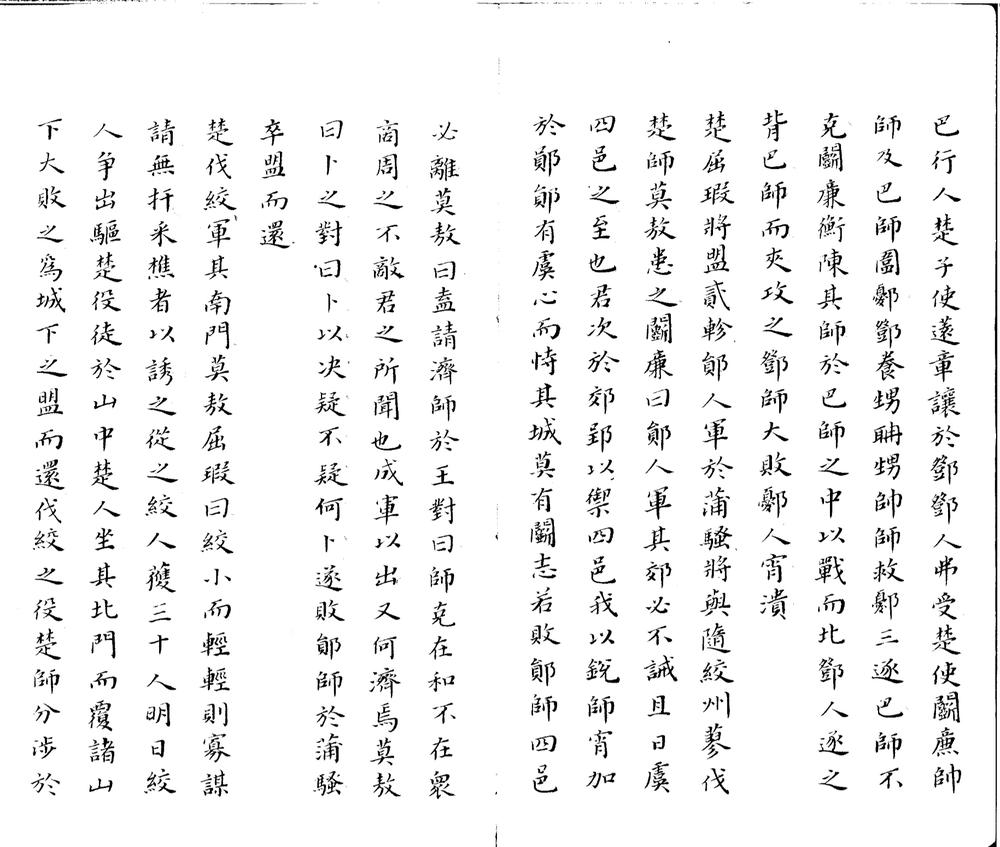 巴行人楚子使薳章讓於鄧鄧人弗受楚使鬭廉帥
師及巴師圍鄾鄧養甥聃甥帥師救鄾三逐巴師不
克鬭廉衡陳其師於巴師之中以戰而北鄧人逐之
背巴師而夾攻之鄧師大敗鄾人宵潰
楚屈瑕將盟貳軫鄖人軍於蒲騷將與隨絞州蓼伐
楚師莫敖患之鬭廉曰鄖人軍其郊必不誡且日虞
四邑之至也君次於郊郢以禦四邑我以銳師宵加
於鄖鄖有虞心而恃其城莫有鬭志若敗鄖師四邑
必離莫敖曰盍請濟師於王對曰師克在和不在衆
商周之不敵君之所聞也成軍以出又何濟焉莫敖
曰卜之對曰卜以决疑不疑何卜遂敗鄖師於蒲騷
卒盟而還
楚伐絞軍其南門莫敖屈瑕曰絞小而輕輕則寡謀
請無扞采樵者以誘之從之絞人獲三十人明日絞
人争出驅楚役徒於山中楚人坐其北門而覆諸山
下大敗之爲城下之盟而還伐絞之役楚師分涉於